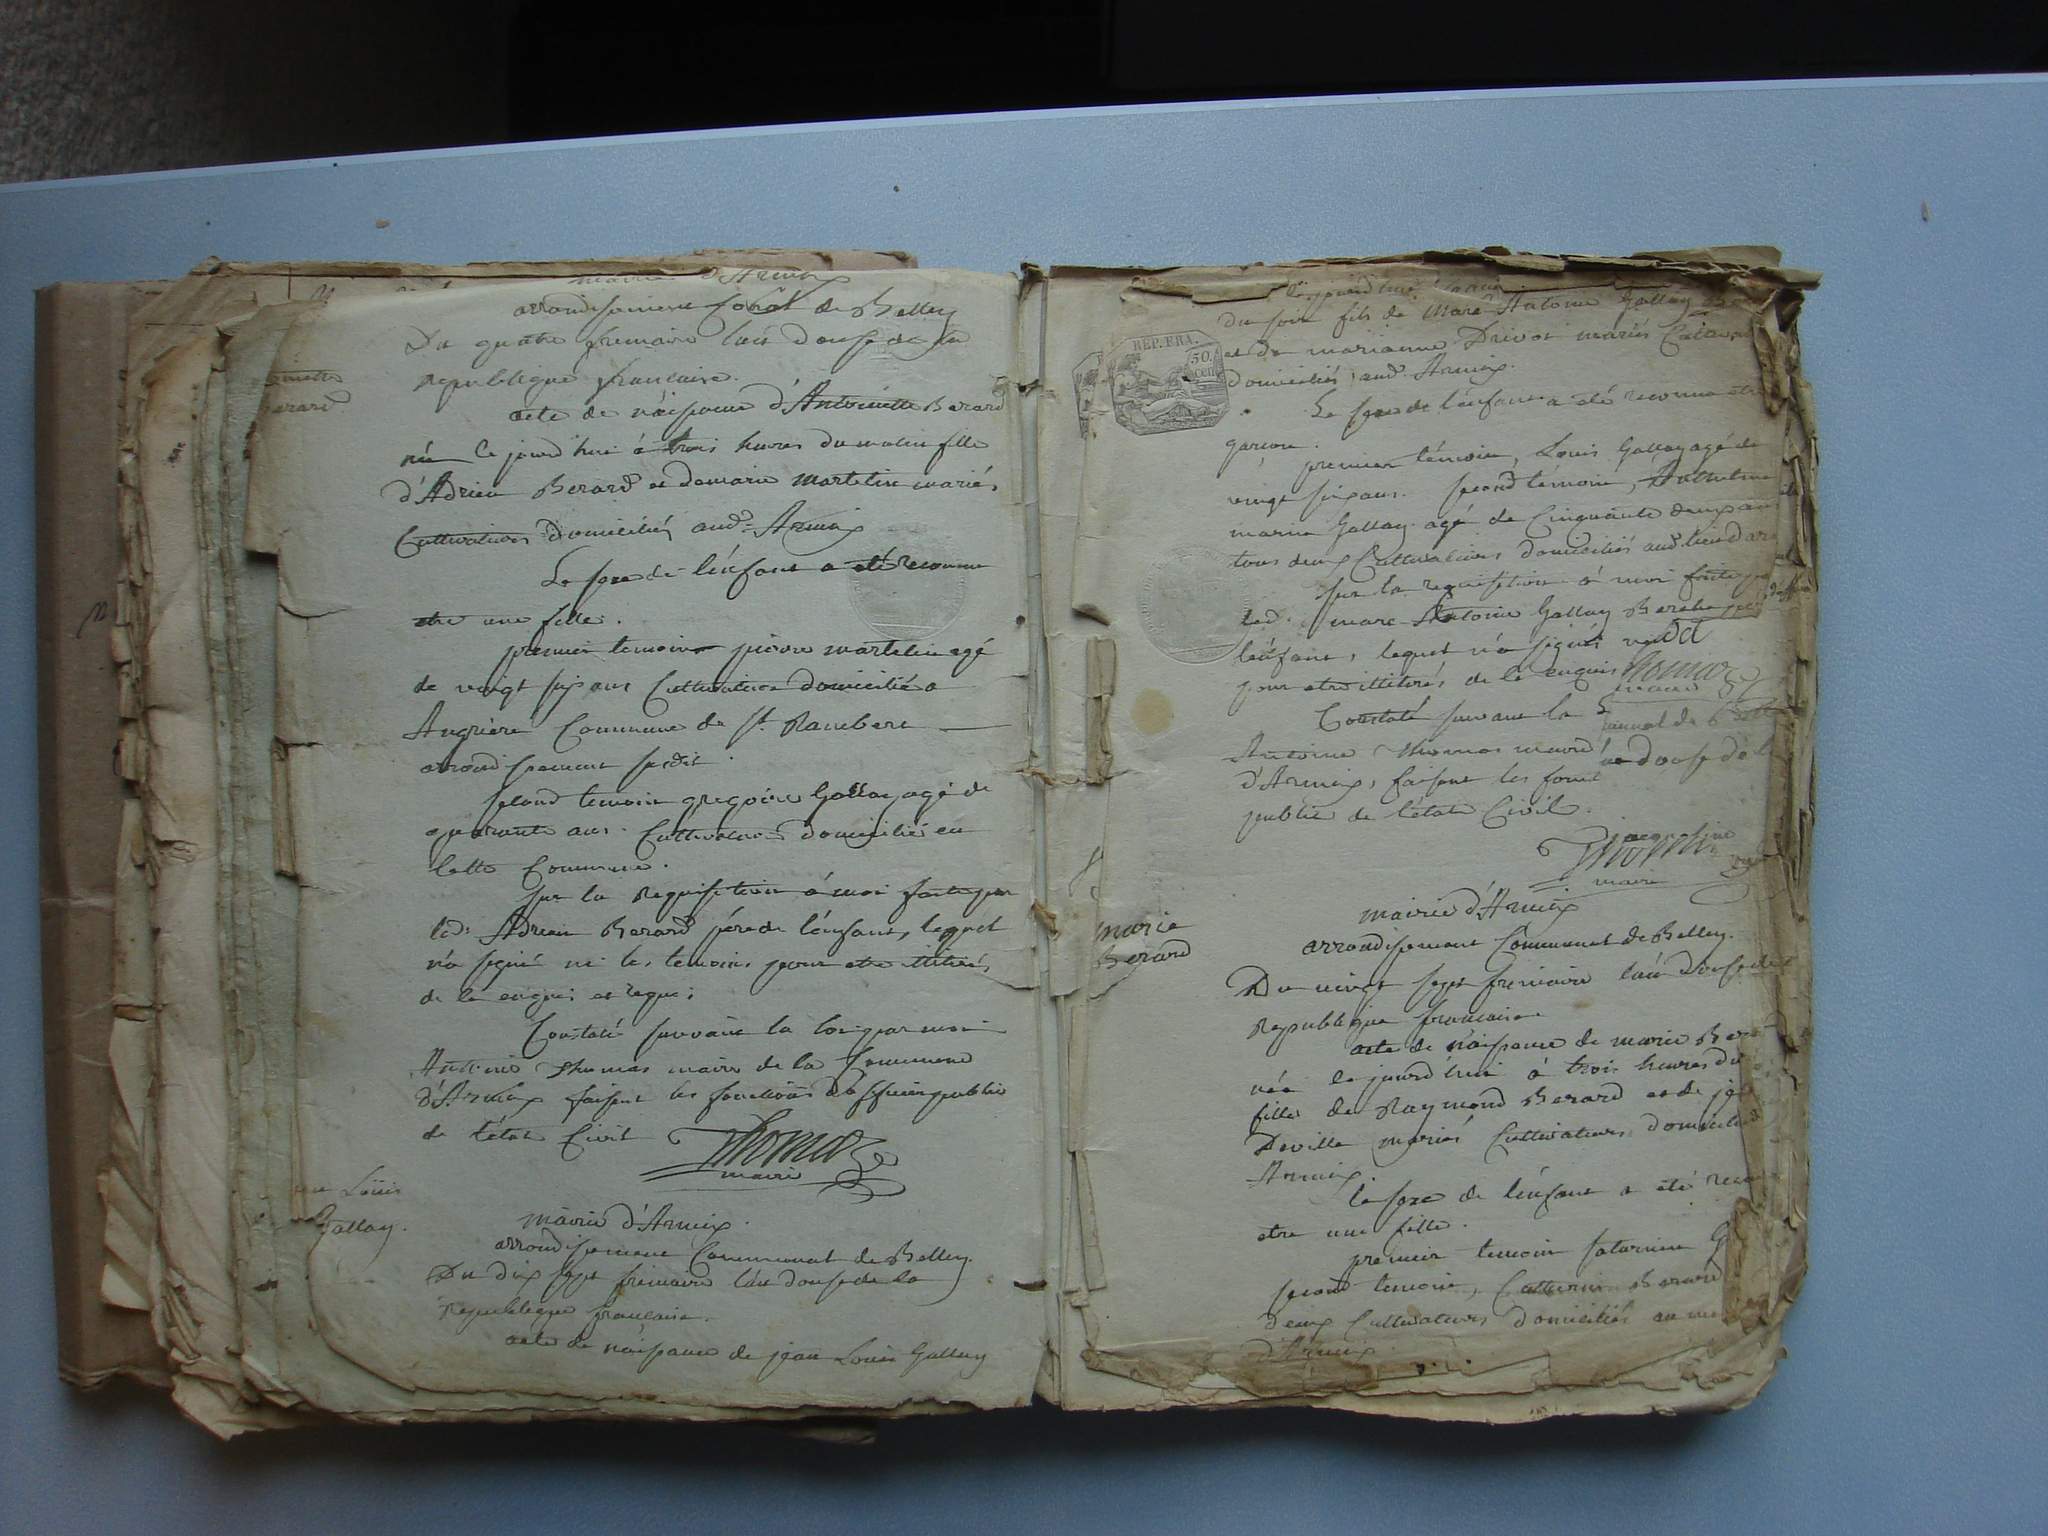 mairie d'Armix
arrondisement Co̅al de Belley
Du quatre frimaire l'an douse de la
Republique francaise.
Antoinette
Berard
acte de naissance d'Antoinette Berard
née ce jourd'hui à trois heures du matin fille
d'Adrien Berard et de marie martelin mariés
Cultivateurs domiciliés aud. Armix
Le sexe de l'enfant a été reconnu
etre une fille.
premier temoin pierre martelin agé
de vingt six ans Cultivateur domicilié a
Angrière Commune de St. Rambert
arrondissement susdit.
second temoin gregoire Gallay agé de
quarante ans. Cultivateur domicilié en
cette Commune.
sur la requisition à moi faite par
led. Adrien Berard père de l'enfant, lequel
n'a signé ni les temoins pour etre illitérés
de ce enquis et requis
Constaté suivant la loi par moi
Antoine Thomas maire de la Commune
d'Armix faisant les fonctions d'officier public
de l'état Civil
Thomas
maire
Louis
Gallay.
mairie d'Armix.
arrondisement Communal de Belley.
Du dix sept frimaire l'an douse de la
Republique francaise.
acte de naissance de jean Louis Gallay
REP. FRA.
50.
cen
du soir fils de Marc Antoine Gallay
et de marianne Drivot mariés
domiciliés aud. Armix.
Le sexe de l'enfant a été reconnu etre
garcon.
premier témoin, Louis Gallay agé de
vingt six ans. second témoin, Anthelme
marin Gallay agé de Cinquante deux ans
tous deux Cultivateurs domiciliés aud. lieu d'ar
sur la requisition à moi faite
led. marc Antoine Gallay
l'enfant, lequel n'a signé
pour etre illitérés de ce enquis Thomas
maire
Constaté suivant la
Antoine Thomas maire
d'Armix, faisant les fonct
public de l'état Civil.
Thomas
maire
marie
Berard
mairie d'Armix
arrondisement Communal de Belley.
Du vingt sept frimaire l'an douse de
Republique francaise.
acte de naissance de marie Ber
née ce jourd'hui à trois heures du
fille de Raymond Berard et de
Deville mariés Cultivateurs domiciliés
Armix
le sexe de l'enfant a été reco
etre une fille.
premier temoin saturnin G
second temoin, Berard
deux Cultivateurs domiciliés au
d'Armix.